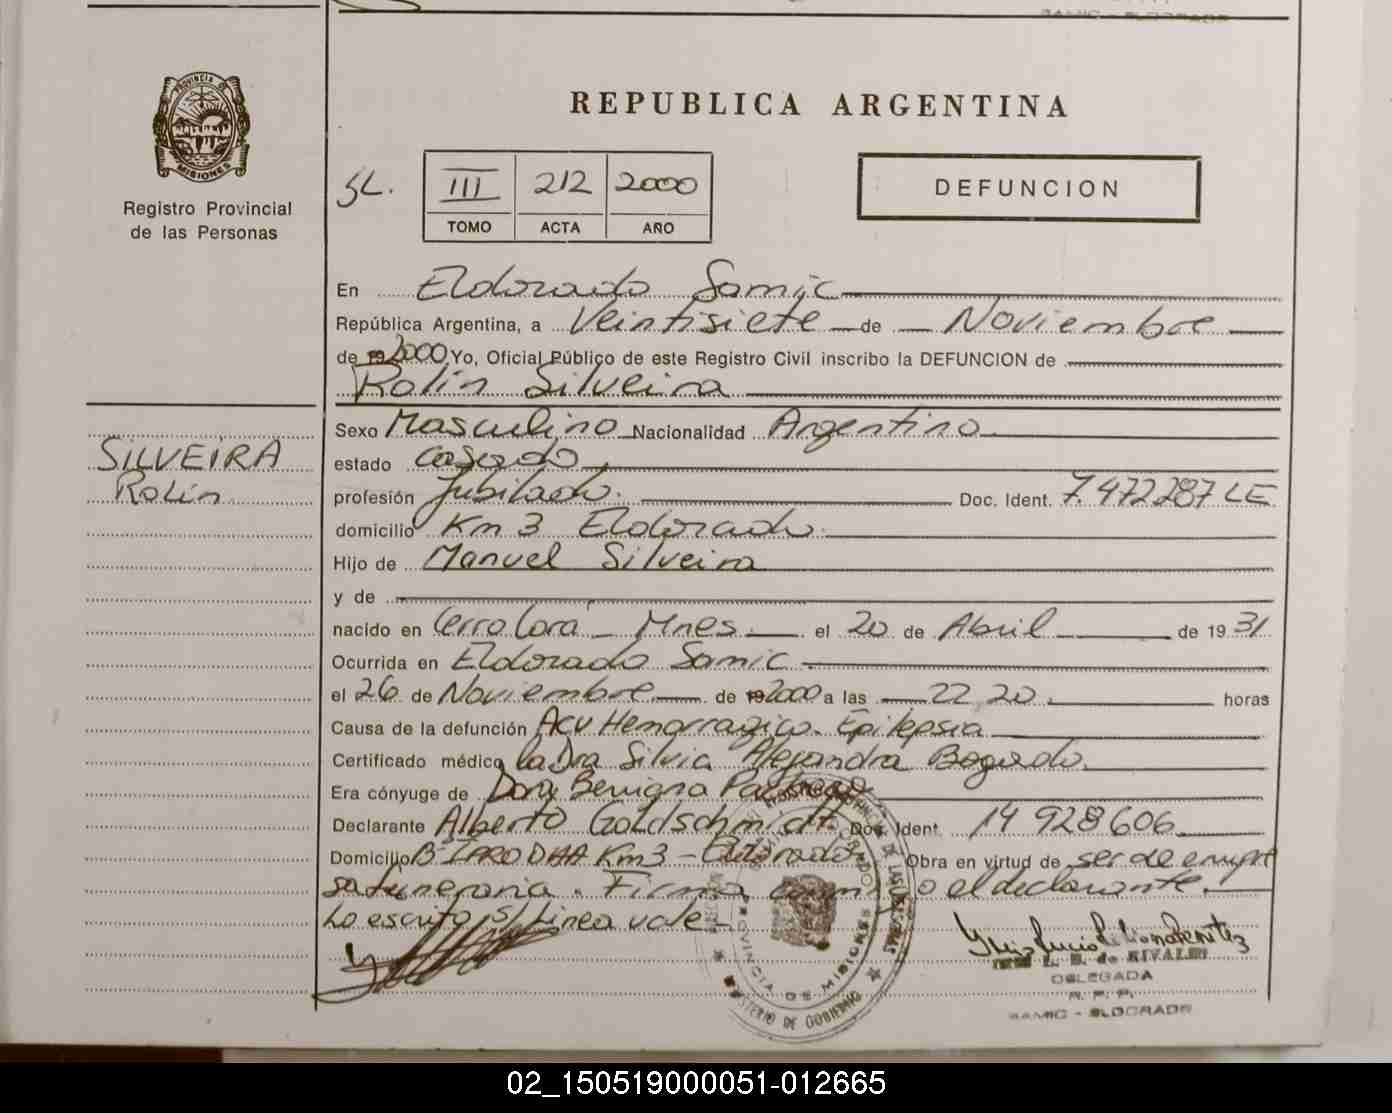 PROVINCIA DE
MISIONES
Registro Provincial
de las Personas
REPUBLICA ARGENTINA
SL.
III 212 2000
TOMO ACTA AÑO
DEFUNCION
En Eldorado Samic
República Argentina, a Veintisiete de Noviembre
de 19 2000 Yo, Oficial Público de este Registro Civil inscribo la DEFUNCION de
Rolín Silveira
Sexo Masculino Nacionalidad Argentino
SILVEIRA
Rolín
estado casado
profesión Jubilado. Doc. Ident. 7.472287 LE
domicilio Km 3 Eldorado.
Hijo de Manuel Silveira
y de
nacido en Cerro Corá - Mnes. el 20 de Abril de 19 31
Ocurrida en Eldorado Samic
el 26 de Noviembre de 19 2000 a las 22 20 horas
Causa de la defunción Acv Hemorragico. Epilepsia
Certificado médico la Dra Silvia Alejandra Bogado.
Era cónyuge de Benigna
Declarante Alberto Goldschmidt. Doc. Ident. 14 928606
Domicilio Bº Km3 - Eldorado Obra en virtud de ser de empre
sa funeraria. Firma el declarante.
Lo escrito s/ Linea vale-
L. B. de RIVALDI
DELEGADA
R. P. P.
SAMIC - ELDORADO
PROVINCIA DE MISIONES
MINISTERIO DE GOBIERNO
02_150519000051-012665